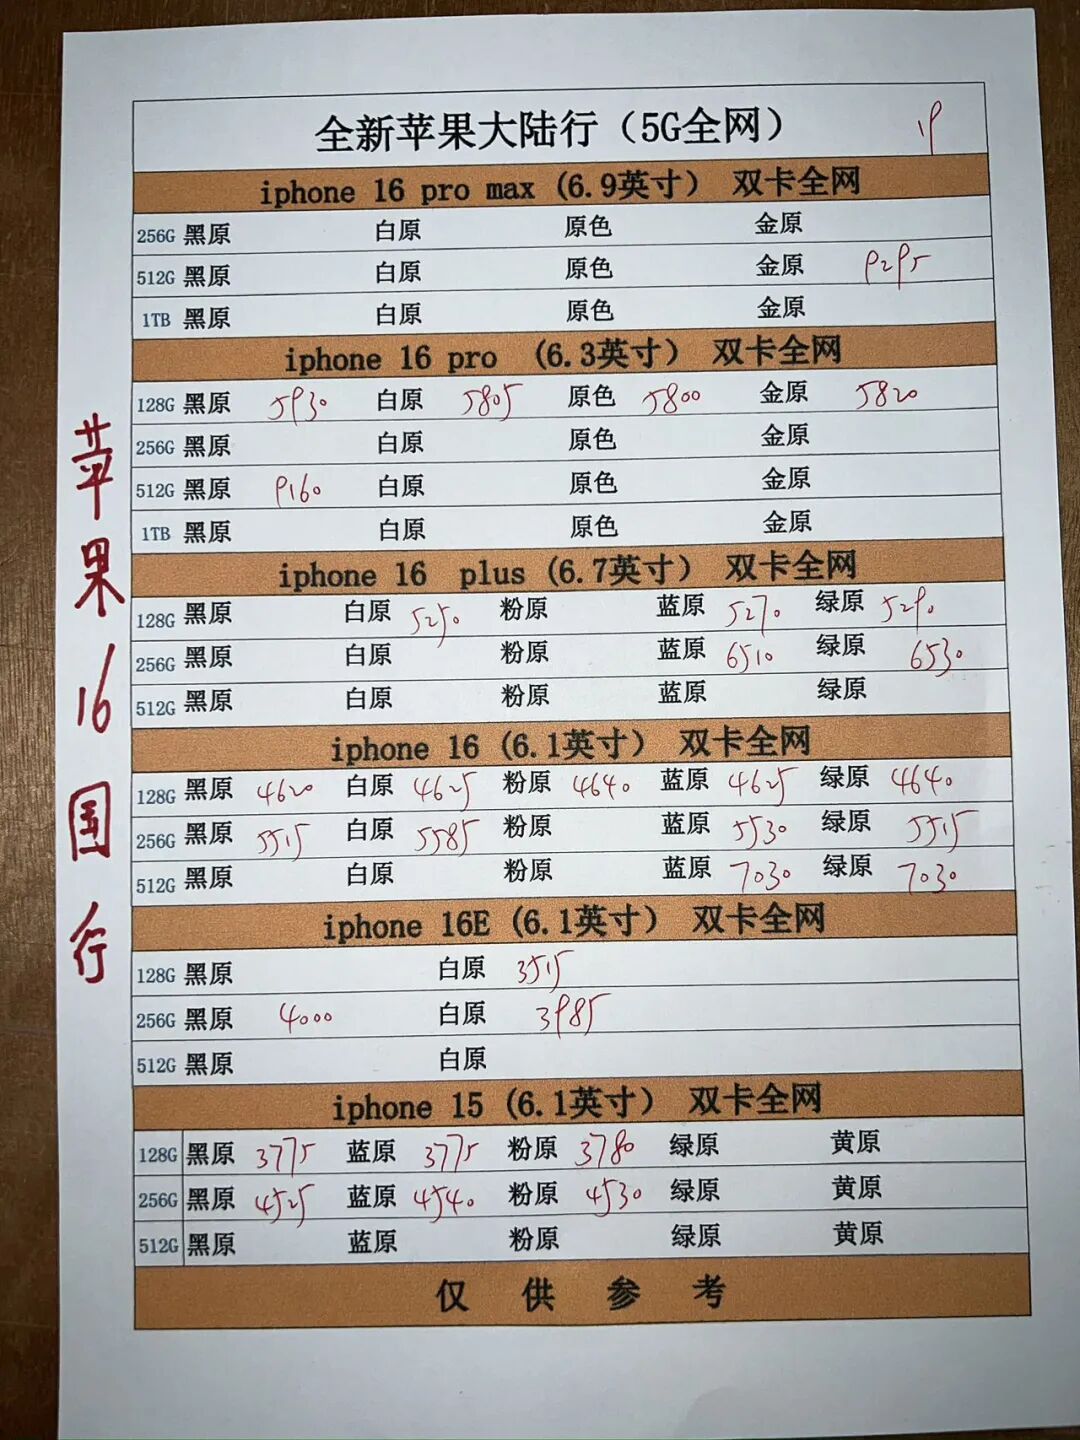 全新苹果大陆行（5G全网） 19
iphone 16 pro max（6.9英寸） 双卡全网
256G 黑原 白原 原色 金原
512G 黑原 白原 原色 金原 9295
1TB 黑原 白原 原色 金原
iphone 16 pro （6.3英寸） 双卡全网
128G 黑原 5930 白原 5805 原色 5800 金原 5820
256G 黑原 白原 原色 金原
512G 黑原 9160 白原 原色 金原
1TB 黑原 白原 原色 金原
iphone 16 plus（6.7英寸） 双卡全网
128G 黑原 白原 5250 粉原 蓝原 5270 绿原 5290
256G 黑原 白原 粉原 蓝原 6510 绿原 6530
512G 黑原 白原 粉原 蓝原 绿原
iphone 16（6.1英寸） 双卡全网
128G 黑原 4620 白原 4625 粉原 4640 蓝原 4625 绿原 4640
256G 黑原 5515 白原 5585 粉原 蓝原 5530 绿原 5515
512G 黑原 白原 粉原 蓝原 7030 绿原 7030
iphone 16E（6.1英寸） 双卡全网
128G 黑原 白原 3515
256G 黑原 4000 白原 3985
512G 黑原 白原
iphone 15（6.1英寸） 双卡全网
128G 黑原 3775 蓝原 3775 粉原 3780 绿原 黄原
256G 黑原 4525 蓝原 4540 粉原 4530 绿原 黄原
512G 黑原 蓝原 粉原 绿原 黄原
仅供参考
苹果16国行